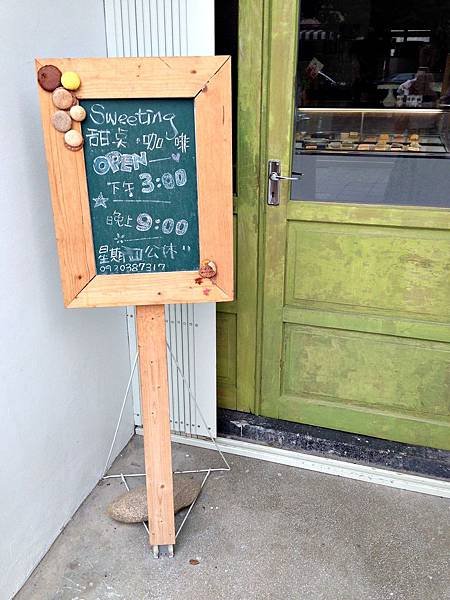 Sweeting
甜点·咖啡
OPEN
下午3:00
晚上9:00
星期三公休
0930387317